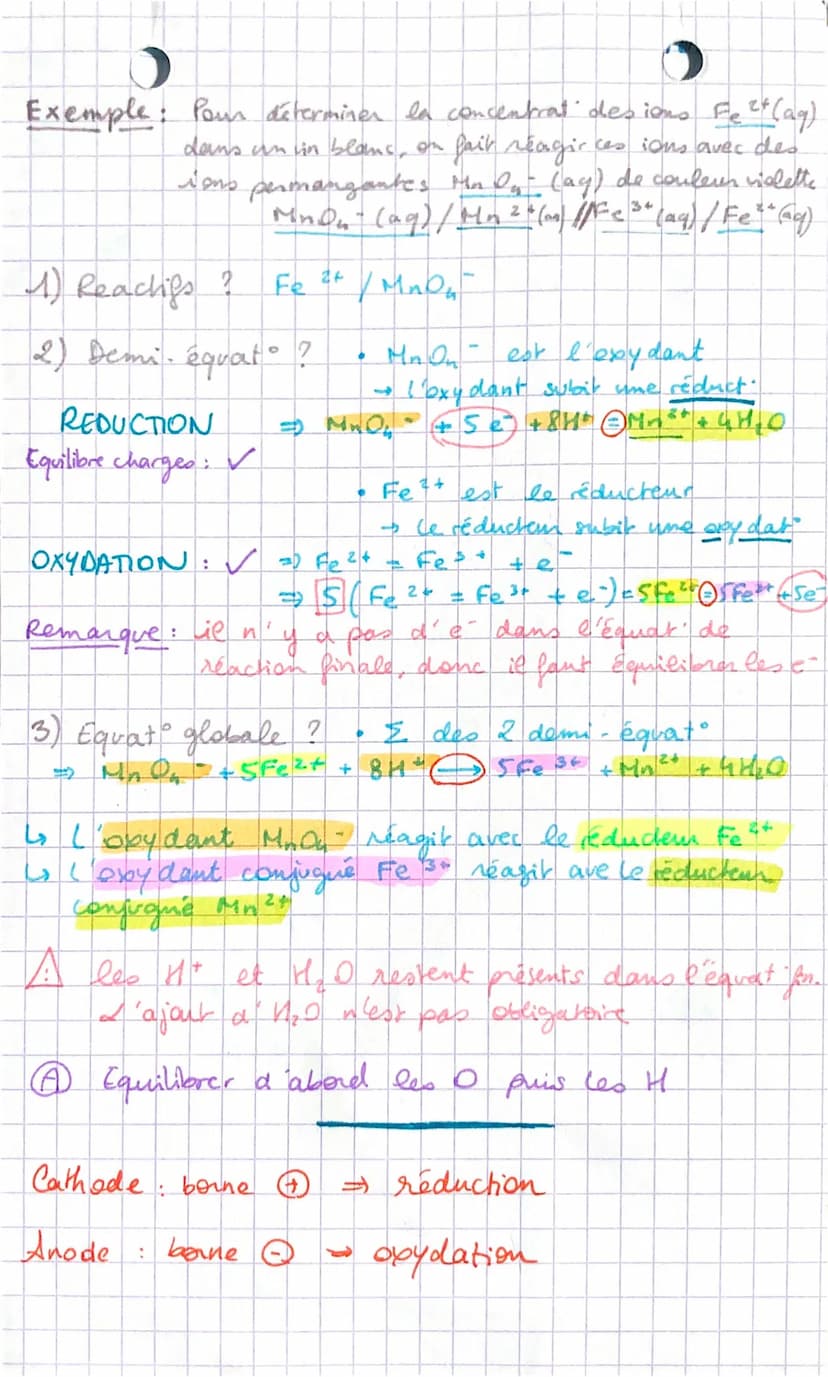 Exemple : Pour déterminer la concentrat° des ions Fe²⁺(aq)
dans un vin blanc, on fait réagir ces ions avec des
ions permangantes MnO₄⁻ (aq) de couleur violette
MnO₄⁻ (aq) / Mn²⁺(aq) // Fe³⁺(aq) / Fe²⁺(aq)
1) Reactifs ? Fe²⁺ / MnO₄⁻
2) Demi-équat° ? • MnO₄⁻ est l'oxydant
→ l'oxydant subit une réduct°
REDUCTION ⇒ MnO₄⁻ + 5e⁻ + 8H⁺ = Mn²⁺ + 4H₂O
Equilibre charges : ✓
• Fe²⁺ est le réducteur
→ le réducteur subit une oxydat°
OXYDATION : ✓ ⇒ Fe²⁺ = Fe³⁺ + e⁻
⇒ 5 (Fe²⁺ = Fe³⁺ + e⁻) = 5Fe²⁺ = 5Fe³⁺ + 5e⁻
Remarque : il n'y a pas d'e⁻ dans l'équat° de
réaction finale, donc il faut équilibrer les e⁻
3) Equat° globale ? • Σ des 2 demi-équat°
⇒ MnO₄⁻ + 5Fe²⁺ + 8H⁺ → 5Fe³⁺ + Mn²⁺ + 4H₂O
↳ L'oxydant MnO₄⁻ réagit avec le réducteur Fe²⁺
↳ L'oxydant conjugué Fe³⁺ réagit ave le réducteur
conjugué Mn²⁺
⚠ les H⁺ et H₂O restent présents dans l'équat° fin.
L'ajout d'H₂O n'est pas obligatoire
Ⓐ Equilibrer d'abord les O puis les H
Cathode : borne ⊕ ⇒ réduction
Anode : borne ⊖ → oxydation